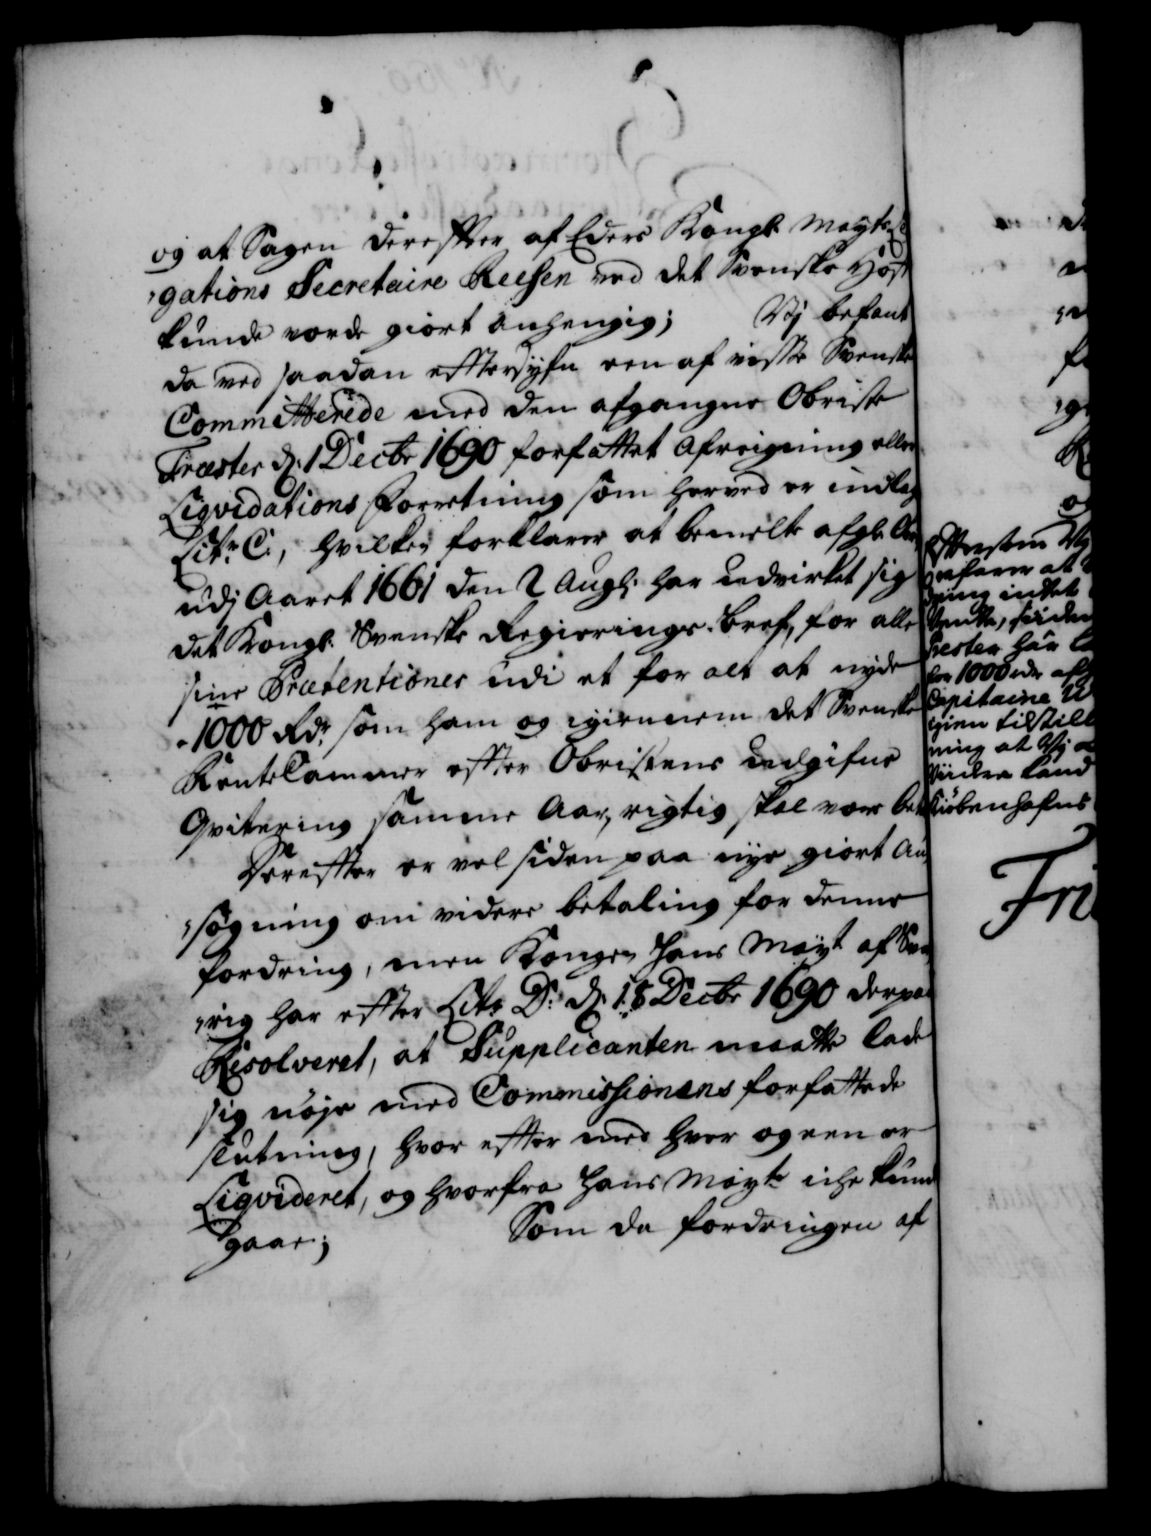 og at Sagen derefter af Eders Kongl. Mayts Le
gations Secretaire Reesen ved det Svenske Hoff
kunde vorde giort anhengig; Vj befant
da ved saadan efftersyfn een af visse Svenske
Committerede med den afgangne Obriste
Træster d. 1 Decbr 1690 forfattet Afreigning eller
Liqvidations Forretning som herved er indlagt
Litr. C, hvilken forklarer at bemelte afg. Obr
udj Aaret 1661 den 2 Augs. har udvirket sig
det Kongl. Svenske Regierings-bref, for alle
sine Prætentioner udi et for alt at nyde
1000 Rdr. som ham og igiennem det Svenske
RenteCammer effter Obristens udgifne
Qvitering samme Aar, rigtig skal være bet
Dereffter er vel siden paa nye giort An
søgning om videre betaling for denne
fordring, men Kongen Hans Mayt af Sve
rig har effter Litr D. d. 18 Decbr 1690 derpaa
Resolveret, at Supplicanten maatte lade
sig nøje med Commissionens forfattede
slutning, hvor effter med hver og een er
Liqvideret, og hvorfra Hans Mayt iche kund
gaae; Som da fordringen af
Effterdem Vj
erfarer at
ning intet
Svenske, siden
Trester har
for 1000 rdr
Capitaine
igien tilstill
ning at Vj
viidere kand
Kiøbenhafns
Fri